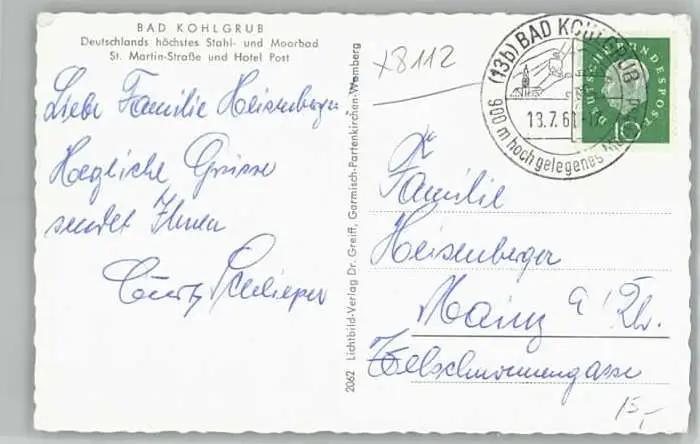 BAD KOHLGRUB
Deutschlands höchstes Stahl- und Moorbad
St. Martin-Straße und Hotel Post
x8112
Liebe Familie Heisenberger
Herzliche Grüsse
sendet Ihnen
Schlieper
2062 Lichtbild-Verlag Dr. Greiff, Garmisch-Partenkirchen-Wamberg
(13b) BAD KOHLGRUB
13.7.61
900 m hoch gelegenes
DEUTSCHE BUNDESPOST
10
Familie
Heisenberger
Mainz a/ Rh.
15,-